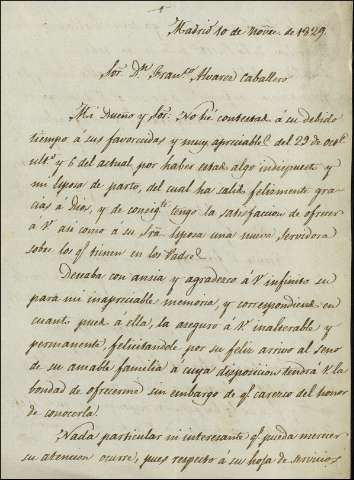 Madrid 10 de Novre. de 1829.
Sor. Dn. Franco. Alvarez Caballero
Mi Dueño y Sor. No he contestado á su debido
tiempo á sus favorecidas y muy apreciables del 29 de octe.
ulto. y 6 del actual por haber estado algo indispuesto y
mi Esposa de parto, del cual ha salido felizmente gra-
cias á Dios, y de consigte. tengo la satisfaccion de ofrecer
á V. asi como á su Sra. Esposa una nueva Servidora
sobre los qe. tienen en los Padres.
Deseaba con ansia y agradezco á V. infinito su
para mi inapreciable memoria, y correspondiendo en
cuanto puedo á ella, la aseguro á V. inalterable y
permanente, felicitandole por su feliz arrivo al seno
de su amable familia á cuya disposicion tendrá V. la
bondad de ofrecerme sin embargo de qe. carezco del honor
de conocerla.
Nada particular ni interesante qe. pueda merecer
su atencion ocurre, pues respecto á su hoja de servicios